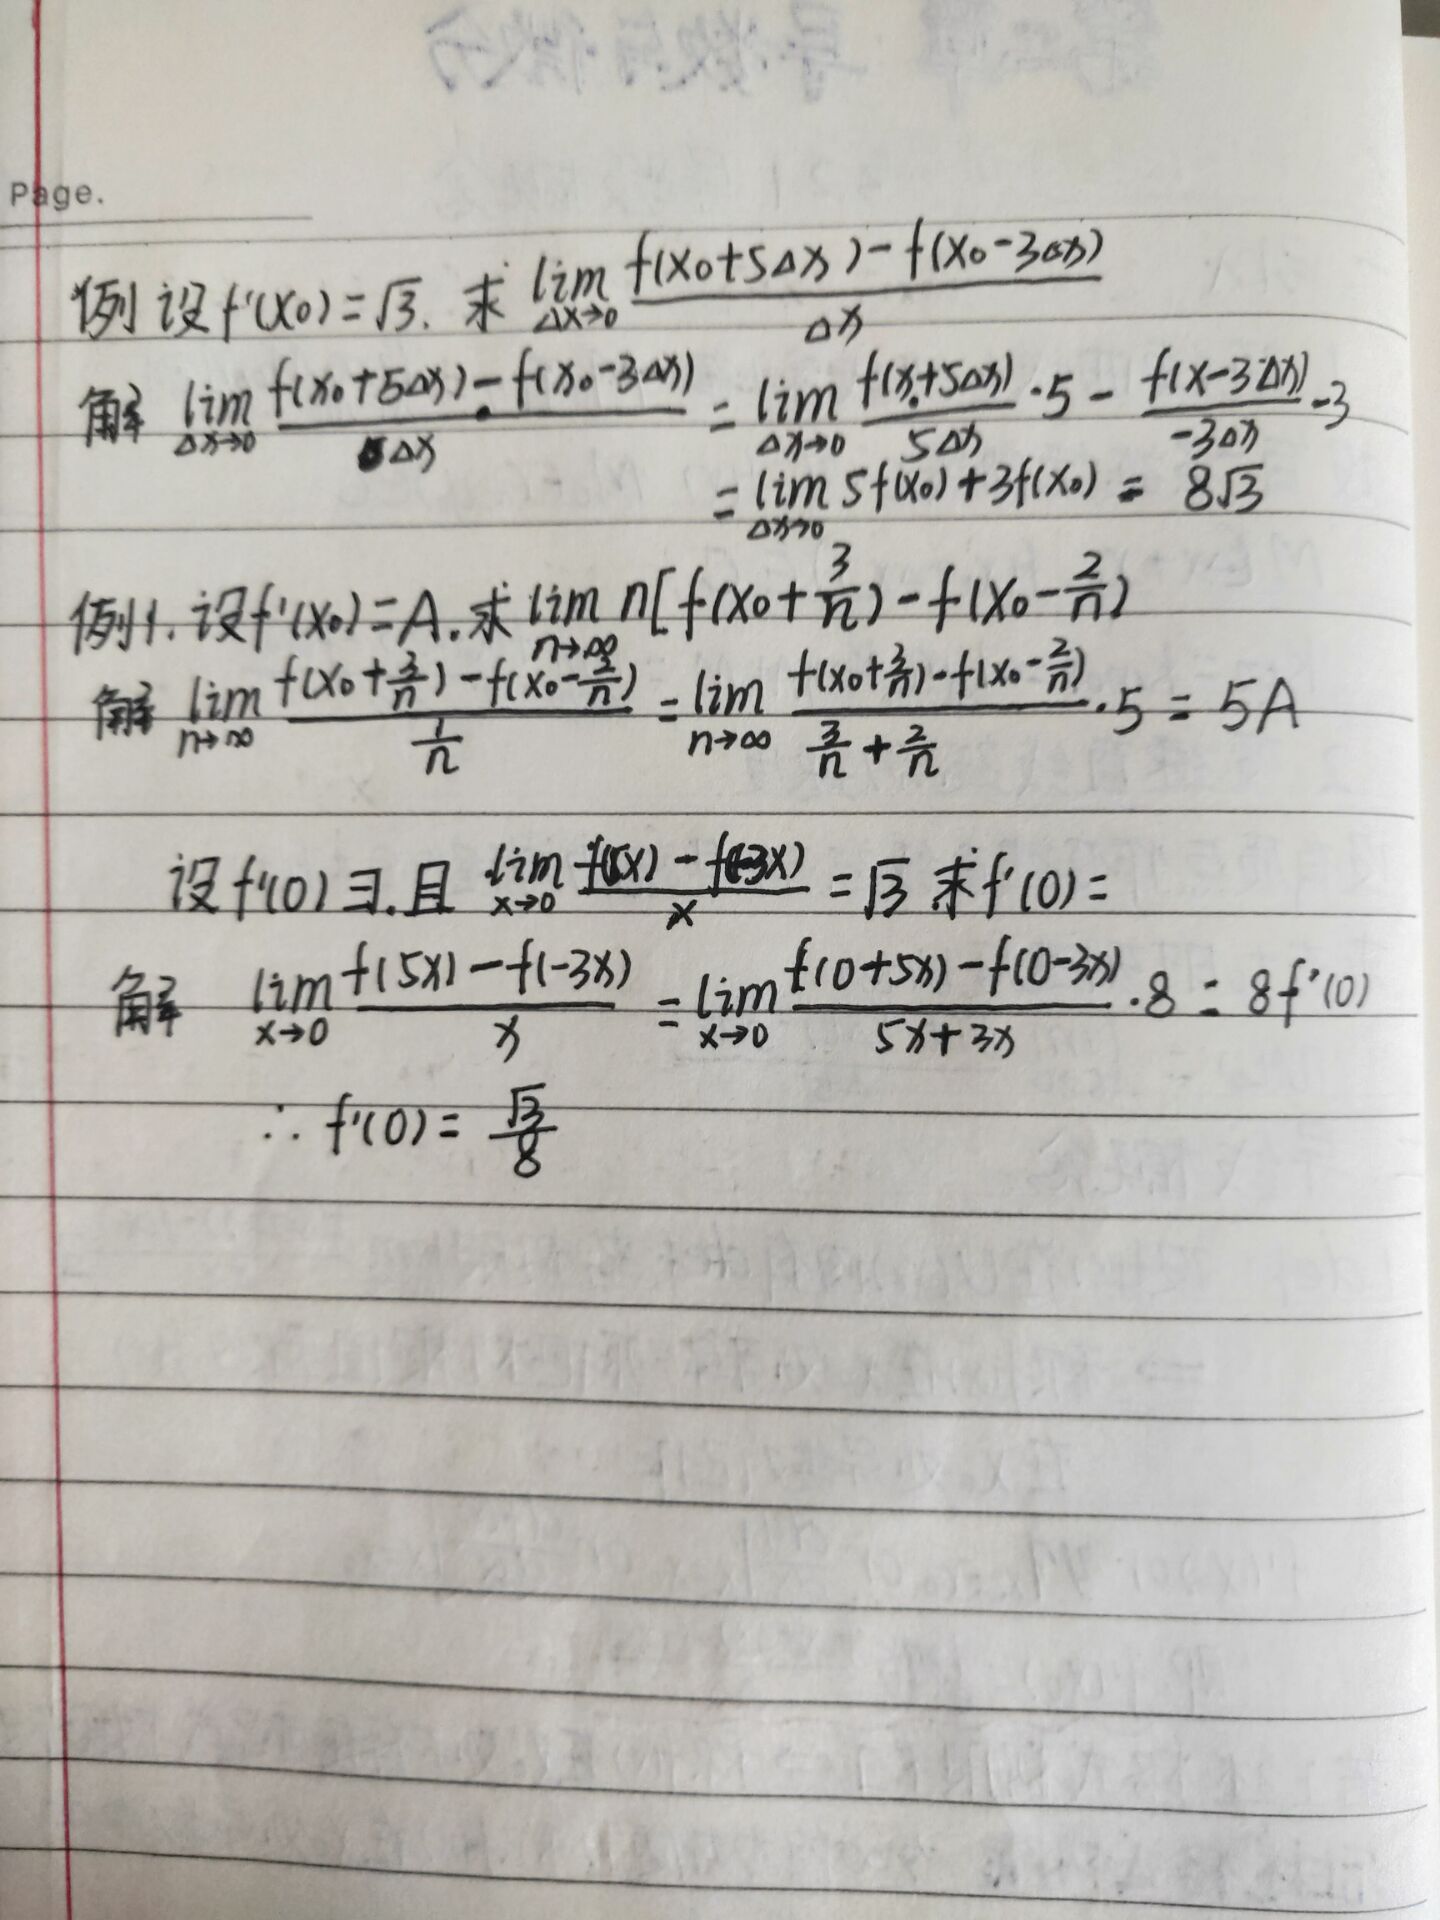 Page.
例 设f'(x₀)=√3. 求 lim_{Δx→0} \frac{f(x₀+5Δx)-f(x₀-3Δx)}{Δx}
解 lim_{Δx→0} \frac{f(x₀+5Δx)-f(x₀-3Δx)}{Δx} = lim_{Δx→0} \frac{f(x+5Δx)}{5Δx}·5 - \frac{f(x-3Δx)}{-3Δx}-3
= lim_{Δx→0} 5f(x₀)+3f(x₀) = 8√3
例1. 设f'(x₀)=A. 求 lim_{n→∞} n[f(x₀+\frac{3}{n})-f(x₀-\frac{2}{n})
解 lim_{n→∞} \frac{f(x₀+\frac{3}{n})-f(x₀-\frac{2}{n})}{\frac{1}{n}} = lim_{n→∞} \frac{f(x₀+\frac{3}{n})-f(x₀-\frac{2}{n})}{\frac{3}{n}+\frac{2}{n}}·5 = 5A
设f'(0)∃.且 lim_{x→0} \frac{f(5x)-f(-3x)}{x} = √3 求f'(0)=
解 lim_{x→0} \frac{f(5x)-f(-3x)}{x} = lim_{x→0} \frac{f(0+5x)-f(0-3x)}{5x+3x}·8 = 8f'(0)
∴ f'(0) = \frac{√3}{8}